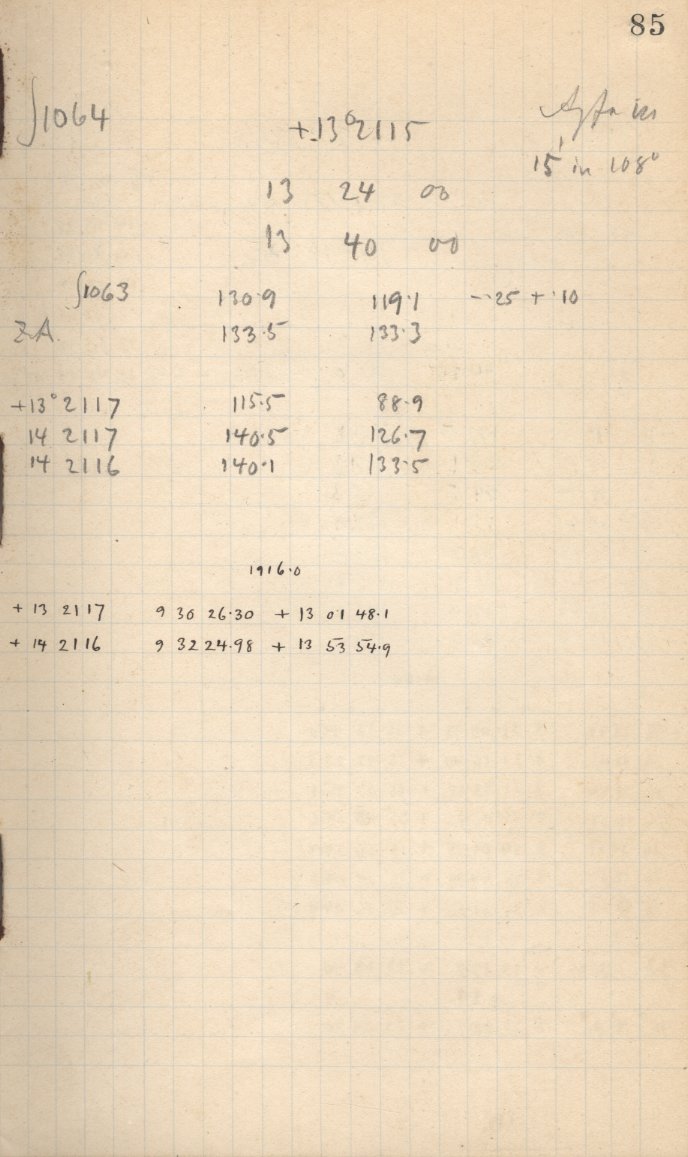 85
∫1064 +13°2115
15' in 108°
13 24 00
13 40 00
∫1063 130·9 119·1 -·25 + ·10
Z.A. 133·5 133·3
+13° 2117 115·5 88·9
14 2117 140·5 126·7
14 2116 140·1 133·5
1916·0
+ 13 2117 9 30 26·30 + 13 01 48·1
+ 14 2116 9 32 24·98 + 13 53 54·9